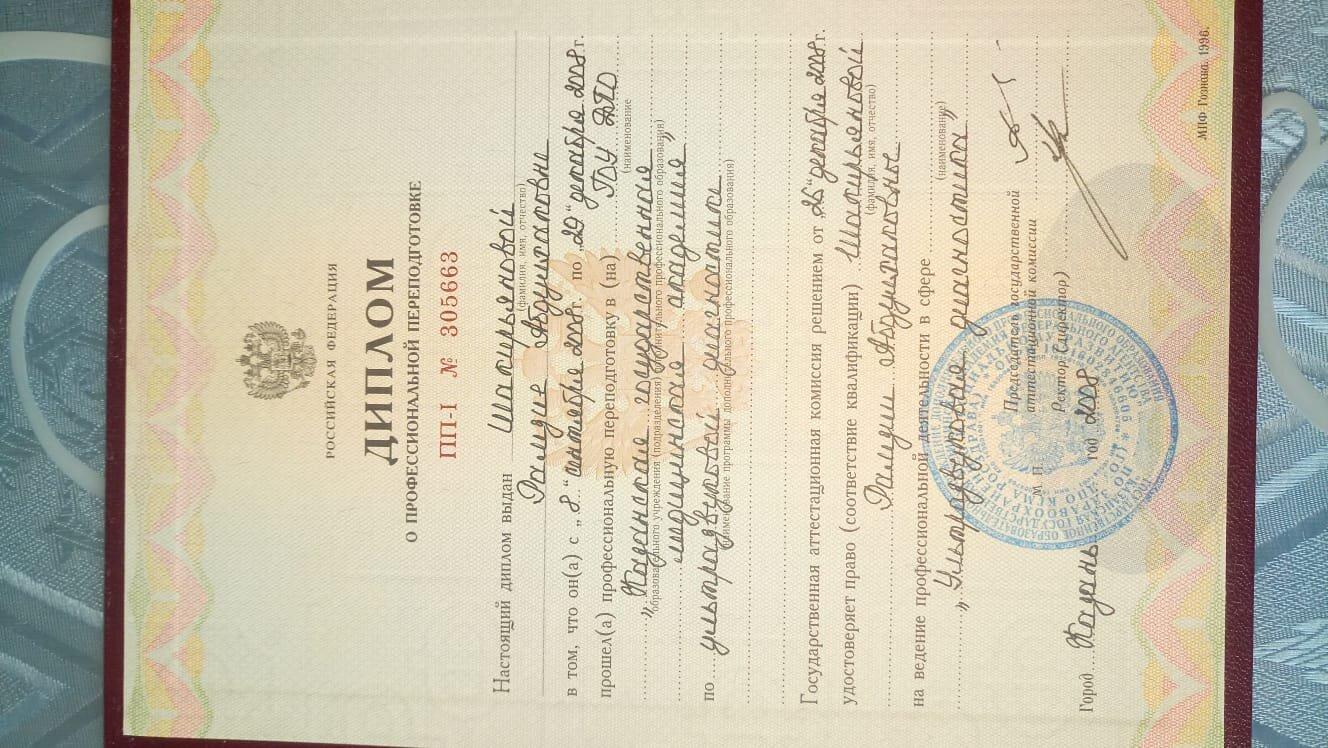 РОССИЙСКАЯ ФЕДЕРАЦИЯ
ДИПЛОМ
О ПРОФЕССИОНАЛЬНОЙ ПЕРЕПОДГОТОВКЕ
ПП-I № 305663
Настоящий диплом выдан Шакирьяновой
(фамилия, имя, отчество)
Фаиме
в том, что он(а) с „8“ сентября 2008 г. по „29“ декабря 2008 г.
прошел(а) профессиональную переподготовку в (на) ГОУ ДПО
(наименование
„Казанская государственная
образовательного учреждения (подразделения) дополнительного профессионального образования)
медицинская академия“
по ультразвуковой диагностике
(наименование программы дополнительного профессионального образования)
Государственная аттестационная комиссия решением от „26“ декабря 2008 г.
удостоверяет право (соответствие квалификации) Шакирьяновой
(фамилия, имя, отчество)
на ведение профессиональной деятельности в сфере
(наименование)
„Ультразвуковая диагностика“
Председатель государственной
аттестационной комиссии
М. П.
Ректор (директор)
Город Казань год 2008
МПФ Гознака. 1996.